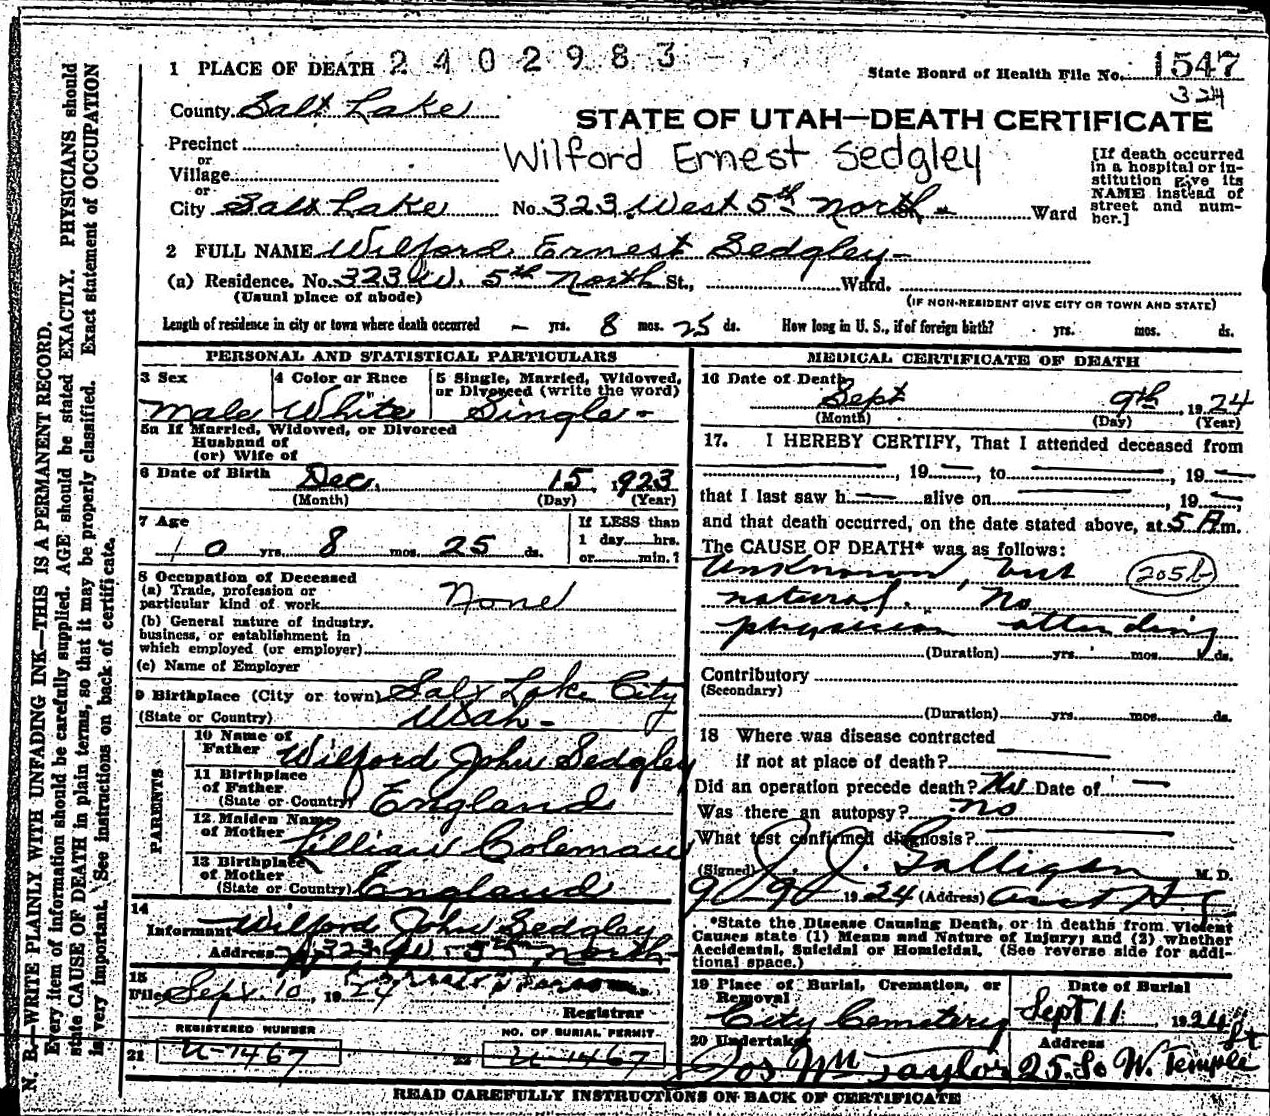 1 PLACE OF DEATH 2402983
State Board of Health File No. 1547
324
County Salt Lake
STATE OF UTAH—DEATH CERTIFICATE
Precinct
or
Village
or
Wilford Ernest Sedgley
[If death occurred
in a hospital or in-
stitution give its
NAME instead of
street and num-
ber.]
City Salt Lake No. 323 West 5th North Ward
2 FULL NAME Wilford Ernest Sedgley
(a) Residence. No. 323 W. 5th North St., Ward.
(Usual place of abode) (IF NON-RESIDENT GIVE CITY OR TOWN AND STATE)
Length of residence in city or town where death occurred — yrs. 8 mos. 25 ds. How long in U. S., if of foreign birth? yrs. mos. ds.
PERSONAL AND STATISTICAL PARTICULARS
3 Sex 4 Color or Race 5 Single, Married, Widowed,
or Divorced (write the word)
Male White Single -
5a If Married, Widowed, or Divorced
Husband of
(or) Wife of
6 Date of Birth Dec. 15, 1923
(Month) (Day) (Year)
7 Age
0 yrs. 8 mos. 25 ds.
If LESS than
1 day hrs.
or min.?
8 Occupation of Deceased
(a) Trade, profession or
particular kind of work None
(b) General nature of industry,
business, or establishment in
which employed (or employer)
(c) Name of Employer
9 Birthplace (City or town) Salt Lake City
(State or Country) Utah -
PARENTS
10 Name of
Father Wilford John Sedgley
11 Birthplace
of Father
(State or Country) England
12 Maiden Name
of Mother Lillian Coleman
13 Birthplace
of Mother
(State or Country) England
14
Informant Wilford John Sedgley
Address 323 W. 5th North
15
Filed Sept. 10, 1924
Registrar
REGISTERED NUMBER NO. OF BURIAL PERMIT
21 U-1467 22 U-1467
MEDICAL CERTIFICATE OF DEATH
16 Date of Death
Sept 9th 1924
(Month) (Day) (Year)
17. I HEREBY CERTIFY, That I attended deceased from
, 19 —, to , 19 —
that I last saw h alive on , 19 —,
and that death occurred, on the date stated above, at 5 A m.
The CAUSE OF DEATH* was as follows:
Unknown, but 205b
natural. No
physician attending
(Duration) yrs. mos. ds.
Contributory
(Secondary)
(Duration) yrs. mos. ds.
18 Where was disease contracted
if not at place of death?
Did an operation precede death? No Date of —
Was there an autopsy? no
What test confirmed diagnosis?
(Signed) J. J. Galligan M. D.
9/9 1924 (Address)
*State the Disease Causing Death, or in deaths from Violent
Causes state (1) Means and Nature of Injury; and (2) whether
Accidental, Suicidal or Homicidal. (See reverse side for addi-
tional space.)
19 Place of Burial, Cremation, or
Removal
City Cemetery
Date of Burial
Sept 11 1924
20 Undertaker
Jos Wm Taylor
Address
25 So W. Temple St
READ CAREFULLY INSTRUCTIONS ON BACK OF CERTIFICATE
N. B.—WRITE PLAINLY WITH UNFADING INK—THIS IS A PERMANENT RECORD.
Every item of information should be carefully supplied. AGE should be stated EXACTLY. PHYSICIANS should
state CAUSE OF DEATH in plain terms, so that it may be properly classified. Exact statement of OCCUPATION
is very important. See instructions on back of certificate.